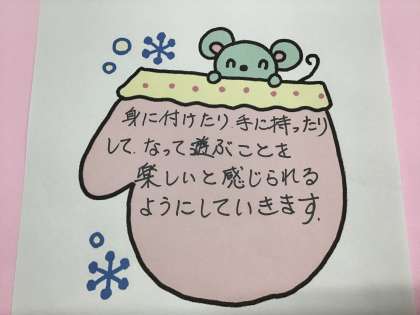 身に付けたり、手に持ったり
して、なって遊ぶことを
楽しいと感じられる
ようにしていきます.